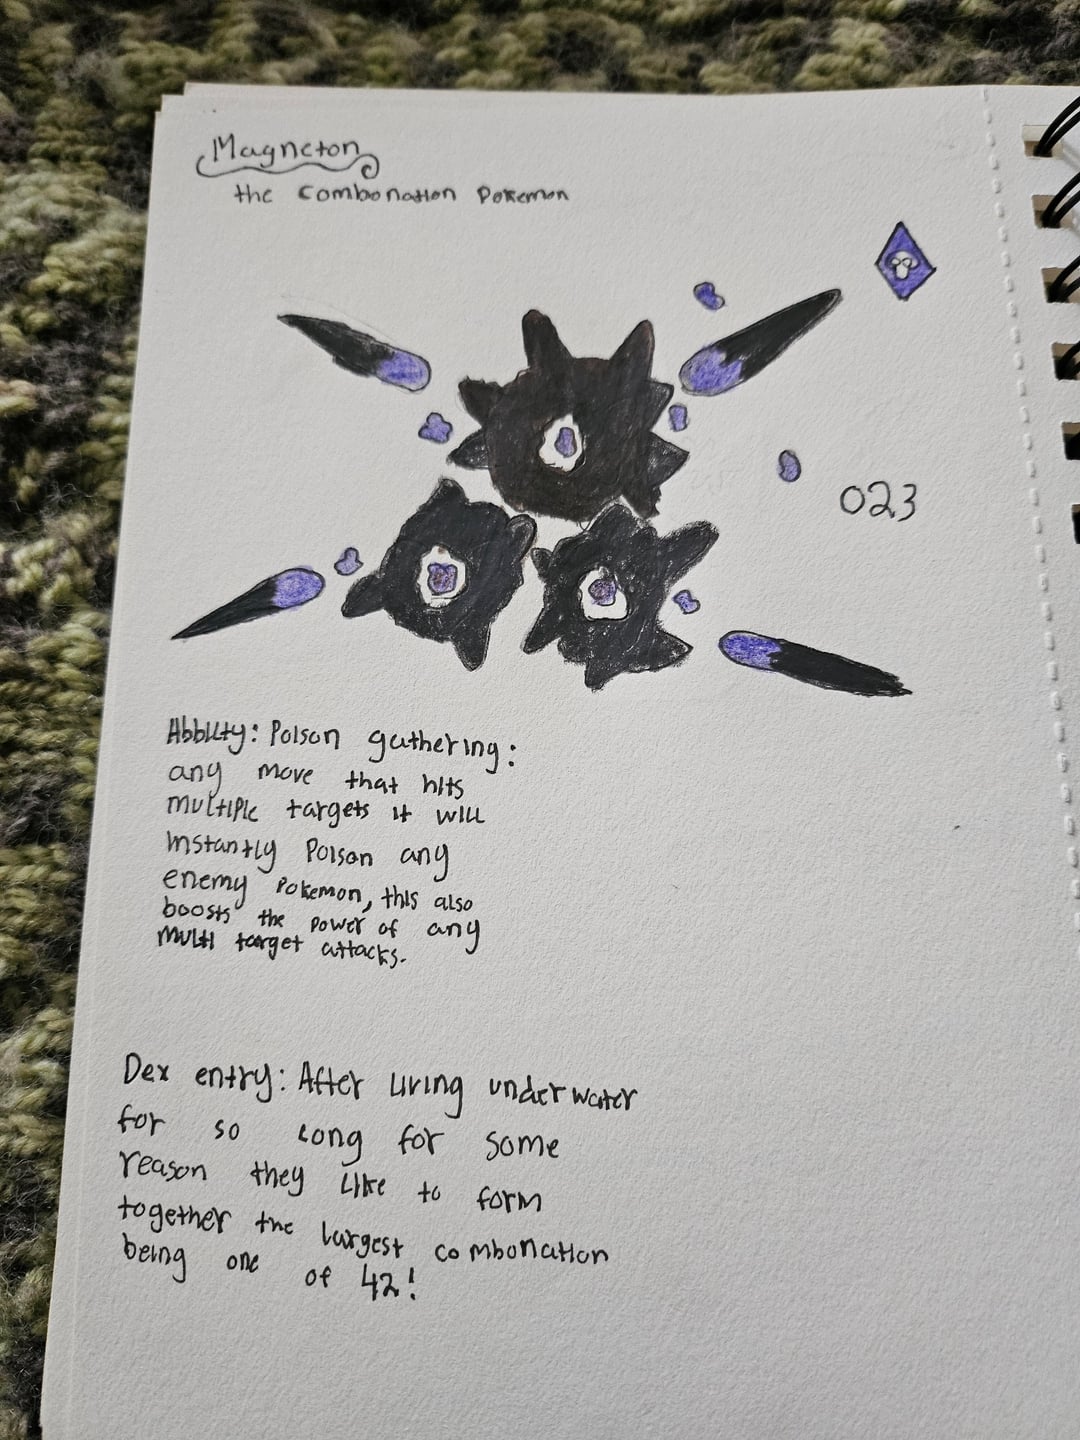 Magneton
the Combonation Pokemon
023
Abbility: Poison gathering:
any move that hits
multiple targets it will
instantly Poison any
enemy Pokemon, this also
boosts the power of any
multi target attacks.
Dex entry: After living underwater
for so long for some
reason they like to form
together the largest combonation
being one of 42!